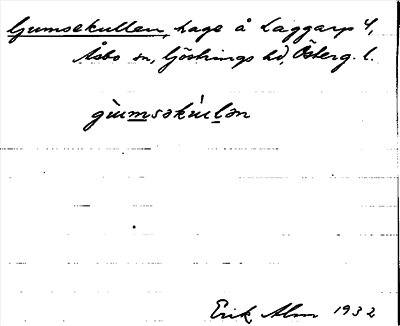 Gumsekullen, hage å Laggarp 4,
Åsbo sn, Göstrings hd, Österg. l.
gùmsəkúlən
Erik Alm 1932